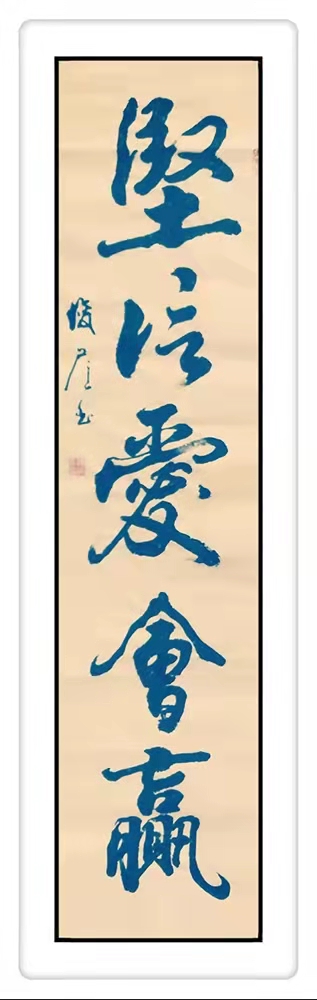 堅信愛會贏